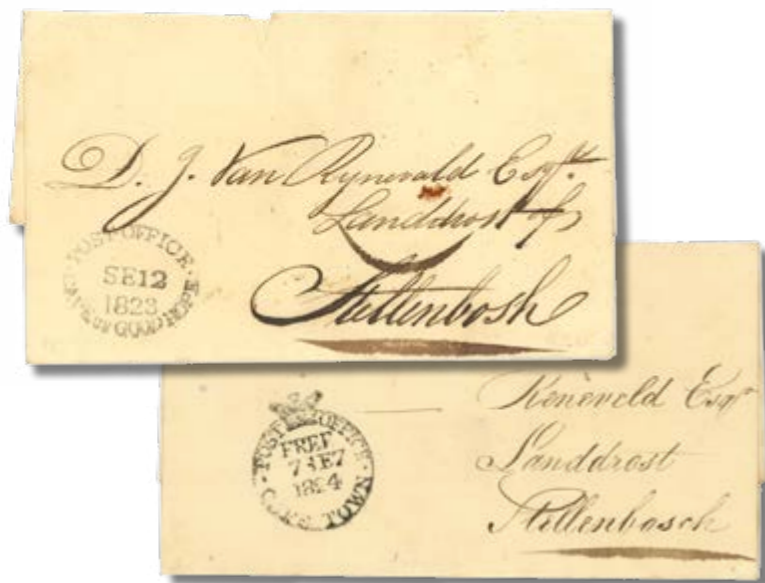 D. J. Van Rynevald Esqr.
Landdrost of
Stellenbosh
POST OFFICE
SE 12
1823
CAPE OF GOOD HOPE
Reneveld Esqr
Landdrost
Stellenbosch
POST OFFICE
FREE
1824
CAPE TOWN